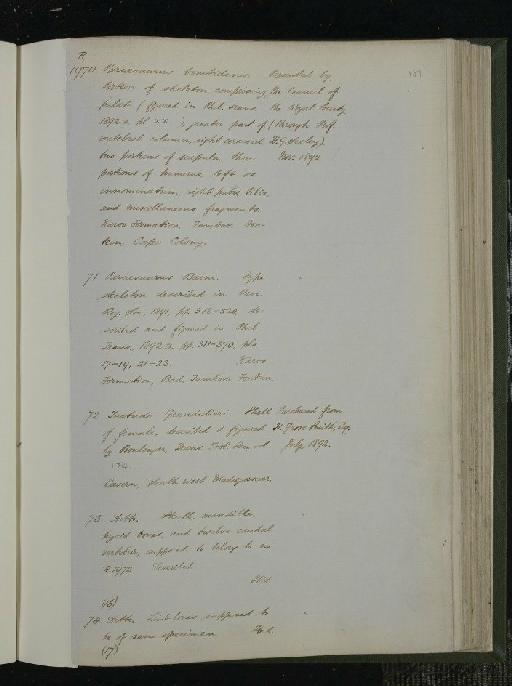 R
1970 Pareiasaurus bombidens. Presented by
Portion of skeleton comprising the Council of
pelvis (figured in Phil. Trans. the Royal Society
1892 B pl. XX greater part of (through Prof.
vertebral column, right coracoid H. G. Seeley)
two portions of scapula, Nov. 1892
portions of humerus, left
innominatum, right pubis, tibia,
and miscellaneous fragments.
Karoo Formation, Tamboer
Cape Colony.
71 Pareiasaurus Baini. Type
skeleton described in Proc.
Roy. Soc. 1891, pp. 518-520, de-
scribed and figured in Phil
Trans. 1892 B. pp. 311-370, pls
17-19, 21-23. Karoo
Formation, Bad, Tamboer Fontein
72 Testudo Grandidieri Shell Purchased from
of female, described & figured H. Grose Smith, Esq.
by Boulenger, Trans. Zool. Soc. July 1892.
Cavern, South west Madagascar.
73 Ditto. Skull, mandible,
hyoid bone, and twelve caudal
vertebrae, supposed to belong to
R 1972
74 Ditto Limb bones supposed to
be of same specimen
(17)